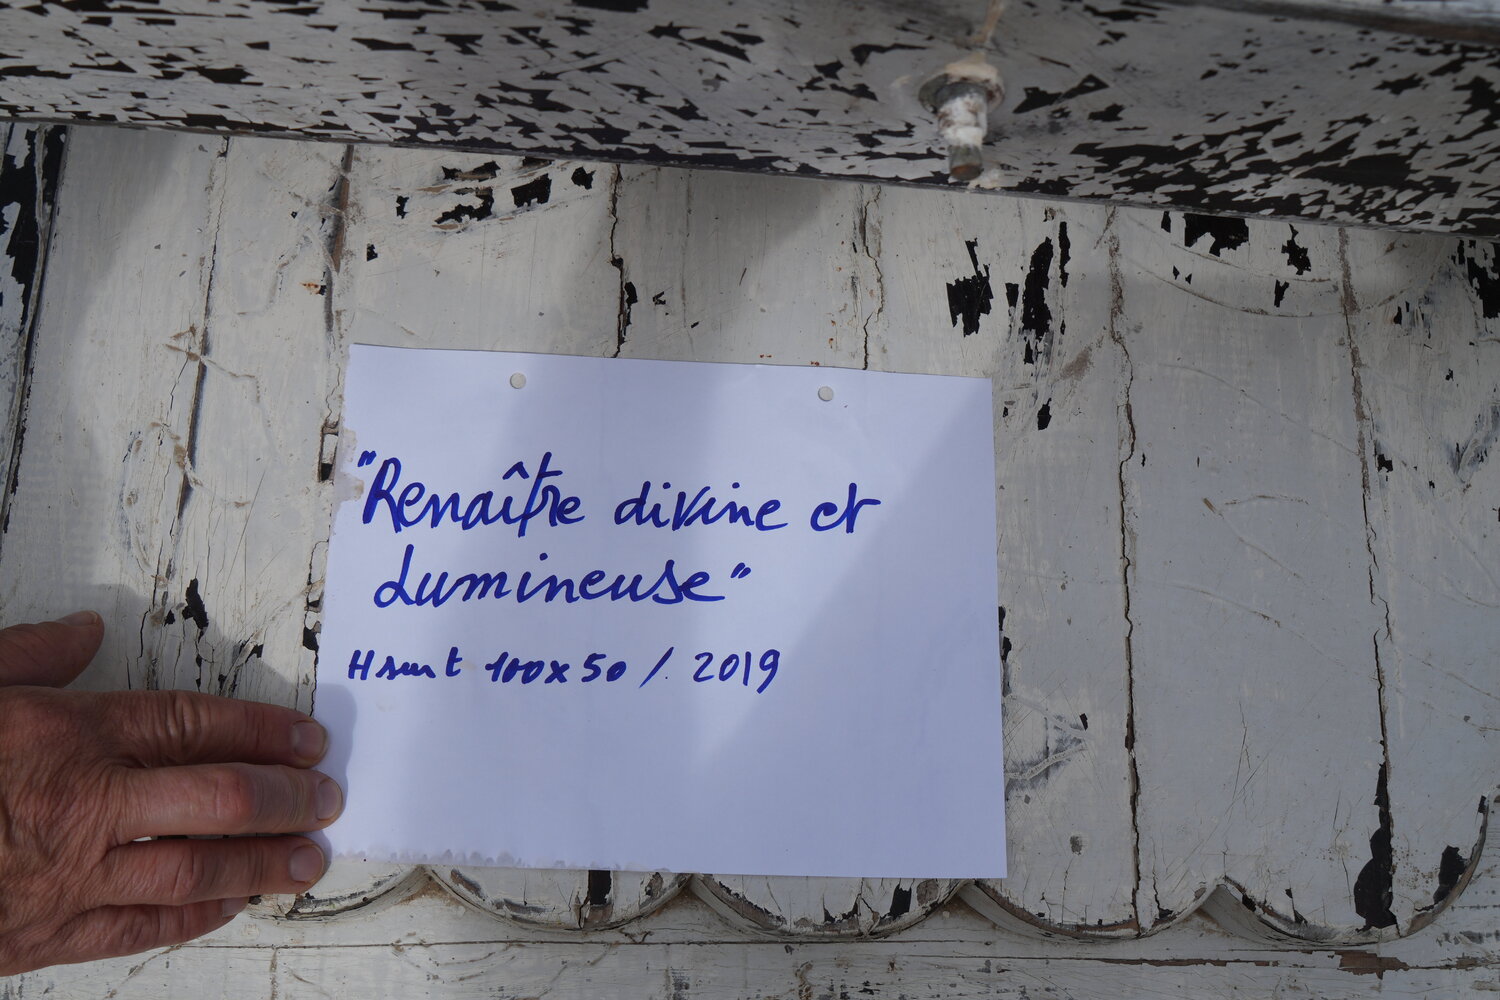 "Renaître divine et
Lumineuse"
H sur t 100x50 / 2019